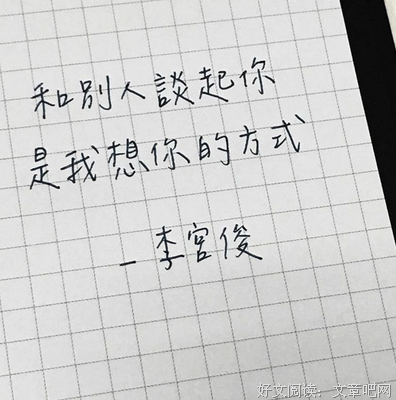 和別人談起你
是我想你的方式
—李宮俊
好文阅读：文章吧网